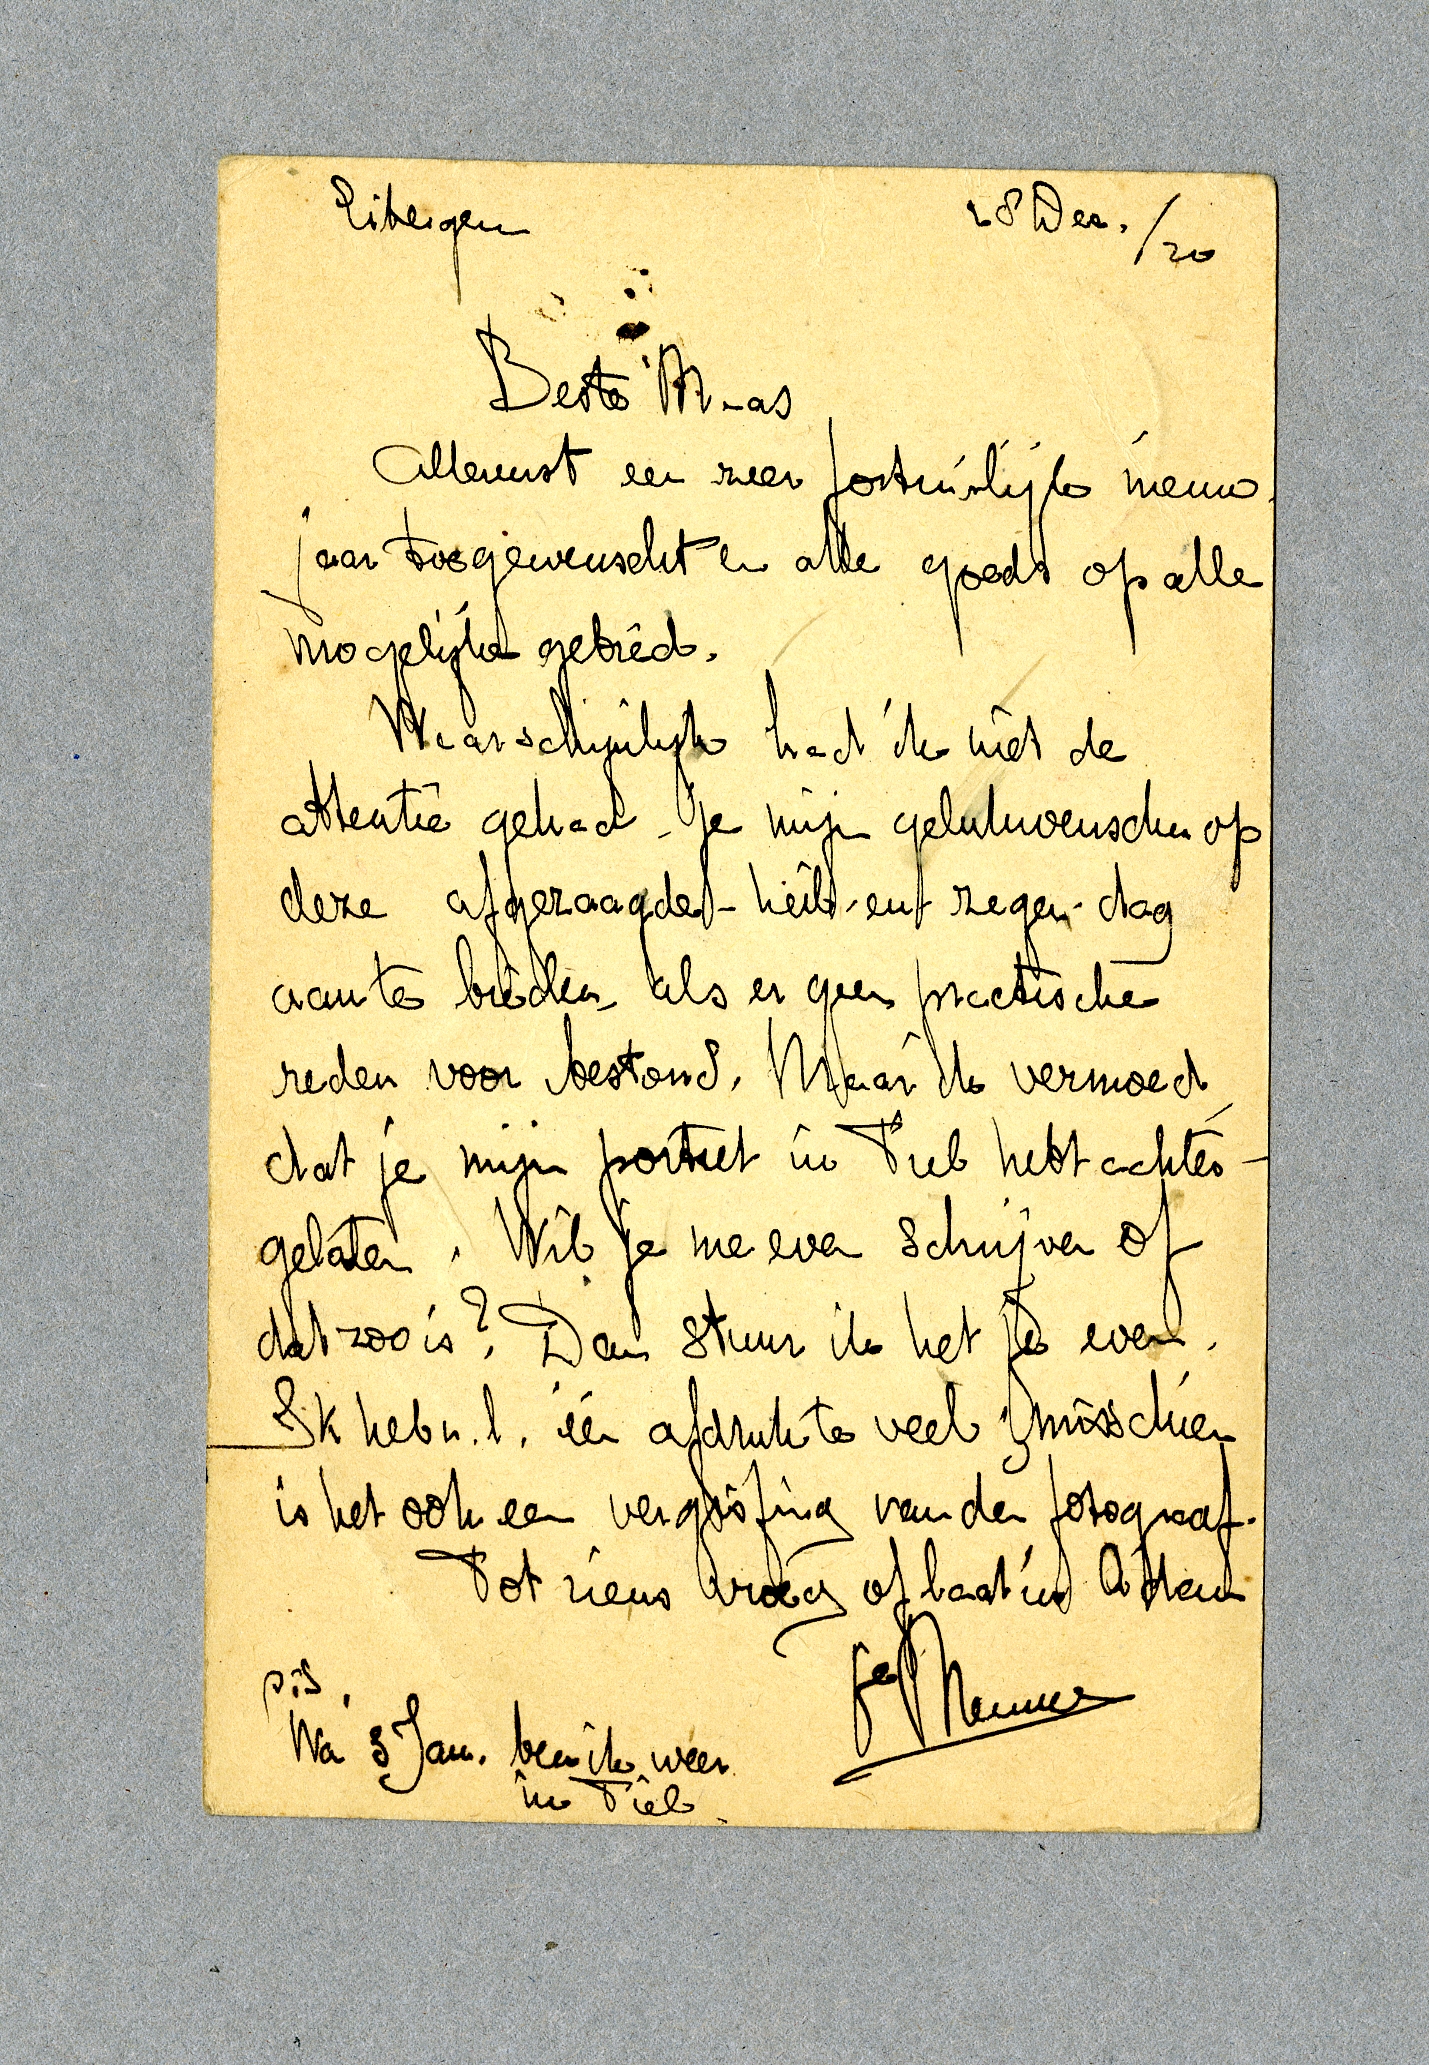 Eibergen 28 Dec. /20
Beste Maas
Allereerst een zeer fortuinlijk nieuw
jaar toegewenscht en alle goeds op alle
mogelijk gebied.
Waarschijnlijk had ik niet de
attentie gehad je mijn gelukwenschen op
deze afgezaagde heil- en zegen-dag
aan te bieden, als er geen practische
reden voor bestond. Maar ik vermoed
dat je mijn portret in Tiel hebt achter-
gelaten. Wil je me even schrijven of
dat zoo is? Dan stuur ik het je even.
Ik heb n.l. één afdruk te veel, misschien
is het ook een vergissing van den fotograaf.
Tot ziens vroeg of laat in A'dam
p.s.
Na 3 Jan. ben ik weer
in Tiel.